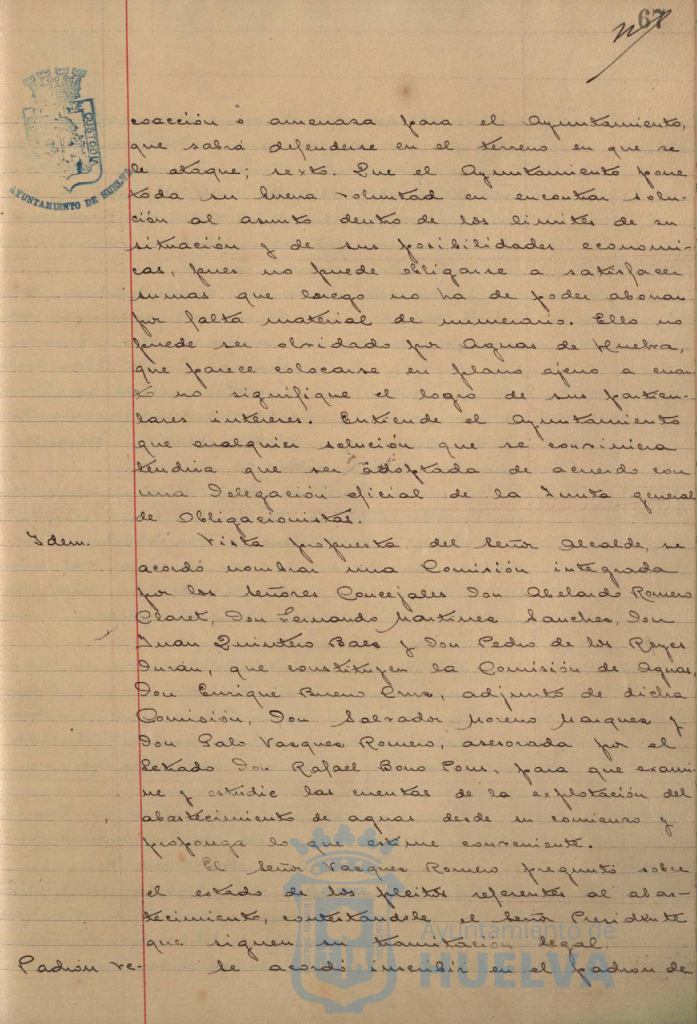 67
CUSTODM
AYUNTAMIENTO DE HUELVA
coacción o amenaza para el Ayuntamiento,
que sabrá defenderse en el terreno en que se
le ataque; sexto. Que el Ayuntamiento pone
toda su buena voluntad en encontrar solu-
ción al asunto dentro de los limites de su
situación y de sus posibilidades economi-
cas, pues no puede obligarse a satisfacer
sumas que luego no ha de poder abonar
por falta material de numerario. Ello no
puede ser olvidado por Aguas de Huelva,
que parece colocarse en plano ajeno a cuan-
to no signifique el logro de sus particu-
lares intereses. Entiende el Ayuntamiento
que cualquier solución que se conviniera
tendria que ser adoptada de acuerdo con
una Delegación oficial de la Junta general
de Obligacionistas.
Idem.
Vista propuesta del Señor Alcalde, se
acordó nombrar una Comisión integrada
por los Señores Concejales Don Abelardo Romero
Claret, Don Fernando Martinez Sanchez, Don
Juan Quintero Baez y Don Pedro de los Reyes
Durán, que constituyen la Comisión de Aguas,
Don Enrique Bueno Cruz, adjunto de dicha
Comisión, Don Salvador Moreno Marquez y
Don Galo Vazquez Romero, asesorada por el
Letrado Don Rafael Bono Pons, para que exami-
ne y estudie las cuentas de la explotación del
abastecimiento de aguas desde su comienzo y
proponga lo que estime conveniente.
El Señor Vazquez Romero preguntó sobre
el estado de los pleitos referentes al abas-
tecimiento, contestandole el Señor Presidente
que siguen su tramitación legal.
Padron ve-
Se acordó inscribir en el padron de
Ayuntamiento de
HUELVA